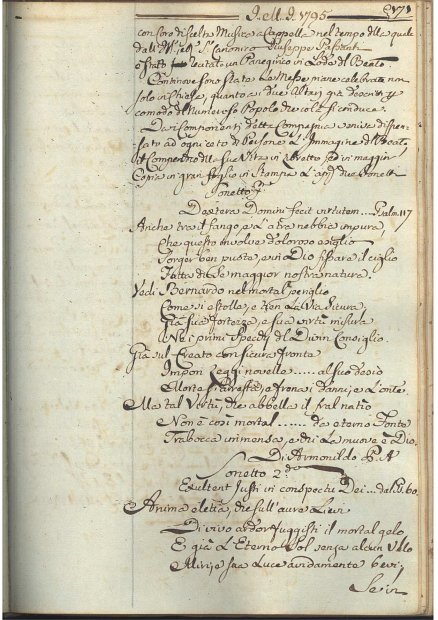 J.M.J. 1795 571
con Coro di scelta Musica a Cappella nel tempo della quale
dall' Canonico Giuseppe
è stato recitato un Panegirico in Lode del Beato
Continove sono state Le Messe ivi celebrate non
solo in Chiesa, quanto a i due Altari
comodo del Numeroso Popolo
Da i Componenti detta Compagnia veniva dispen-
sato ad ogni ceto di Persone L'Immagine del Beato
il Compendio della sua Vita in Libretto, ed in maggior
Copia in gran foglio in Stampa L' due Sonetti
Sonetto P.º
Dextera Domini fecit virtutem.... Psalm. 117
Anche tra il fango, e l'atra nebbia impura,
Che questo involve doloroso esiglio
Sorger ben puote, e in Dio fissare il ciglio
Fatta di Se maggior nostra natura.
Vedi Bernardo nel mortal periglio
Come si estolle, e Len La Via sicura
Già sua fortezza, e sua virtù misura
Ne i primi Specchj del Divin Consiglio.
Già sul Creato con sicura fronte
Impon Leggi novelle ..... al suo desio
Morte si arresta, e frena i danni, e l'onte
Ma tal Vertù, che abbella il fral natio
Non è così mortal ...... da eterno Fonte
Trabocca immensa, e chi La muove è Dio.
Di Armonildo P. A.
Sonetto 2.do
Exultent Justi in conspectu Dei ... 
Anima eletta, che sull'aure Lievi
Di vivo ardor fuggisti il mortal gelo
E già L'Eterno Sol senza alcun Velo
Miri, e sua Luce avidamente bevi;
Se in